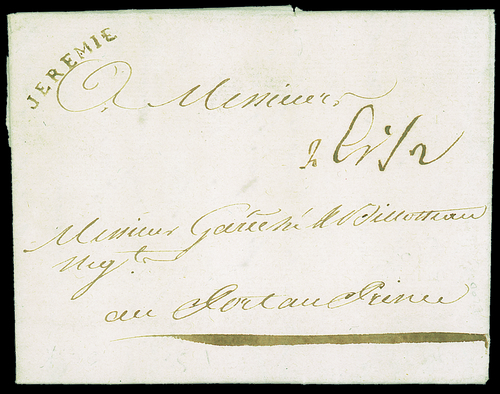 JEREMIE
A Messieurs
Messieurs Gauché & Billoteau
Negt.
au Port au Prince